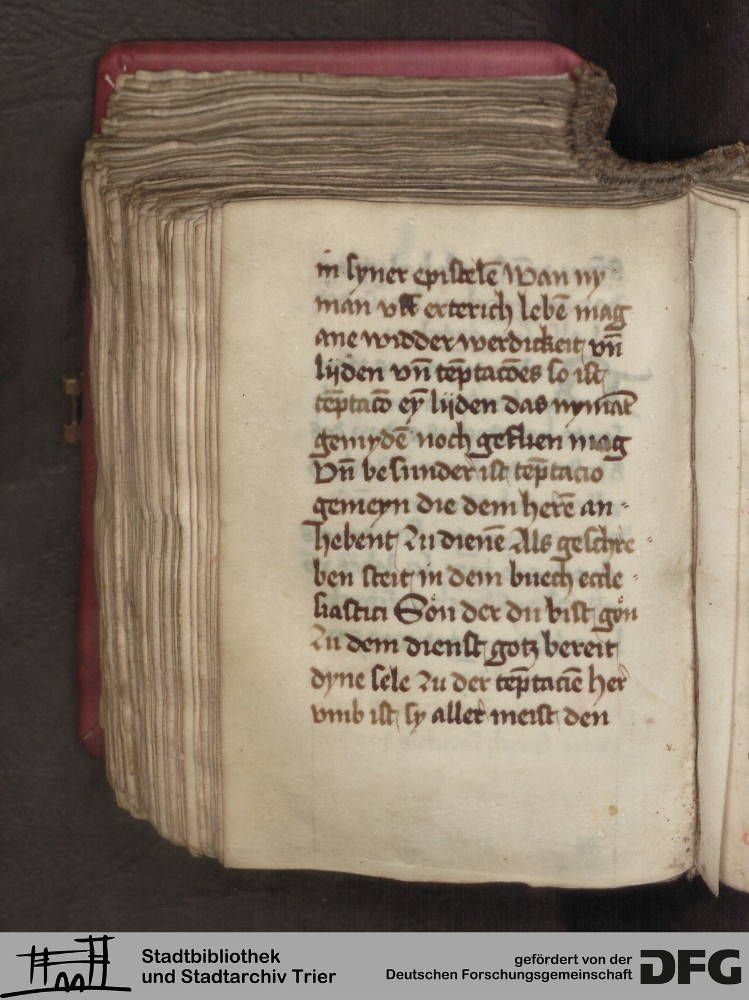 in syner epistelē Wan ny-
man vff erterich lebē mag
ane widderwerdickeit vn̄
lijden vn̄ tēptacōes so ist
tēptacō eÿ lijden das nyman
gemydē noch geflien mag
Vn̄ besunder ist tēptacio
gemeyn die dem herē an-
hebent zu dienē Als geschre-
ben steit in dem buech eccle-
siastici Son der du bist gon
zu dem dienst gotz bereit
dyne sele zu der tēptaciē her
vmb ist sy aller meist den
Stadtbibliothek
und Stadtarchiv Trier
gefördert von der
Deutschen Forschungsgemeinschaft
DFG